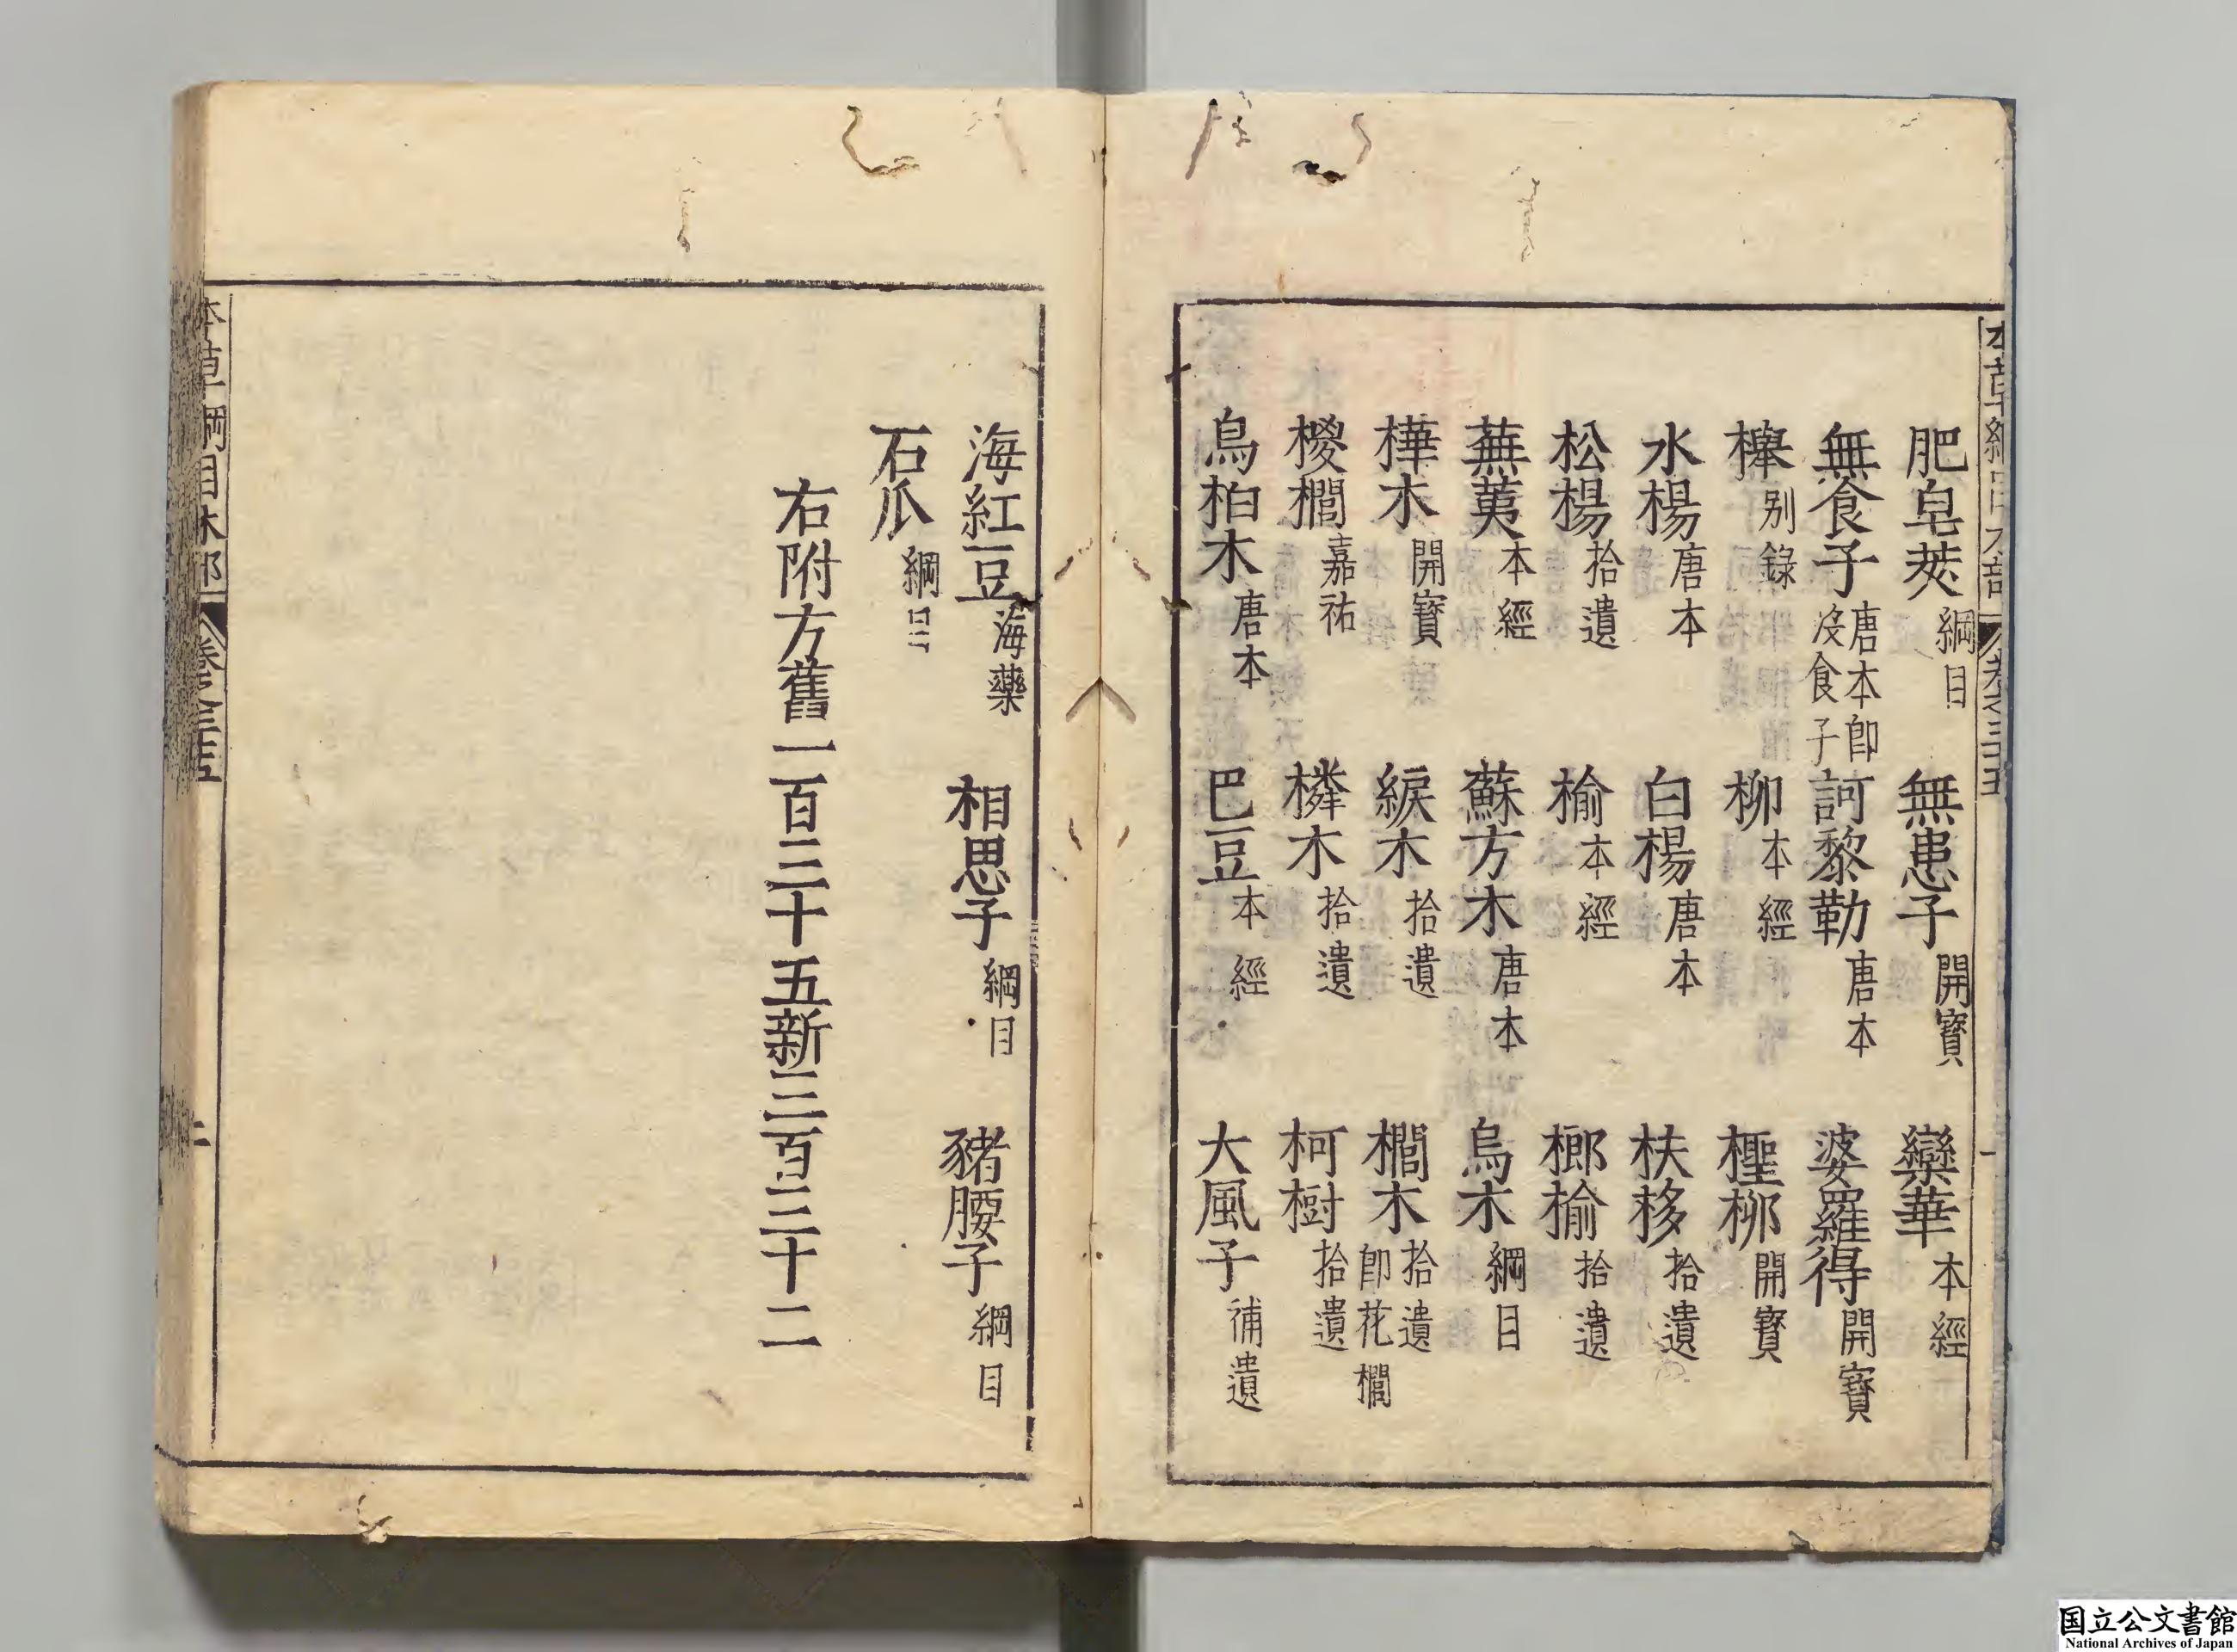 肥皂莢 綱目 無患子 開寶 欒華 本經
無食子 唐本即沒食子 訶黎勒 唐本 婆羅得 開寶
櫸 別錄 柳 本經 檉柳 開寶
水楊 唐本 白楊 唐本 扶栘 拾遺
松楊 拾遺 榆 本經 榔榆 拾遺
蕪荑 本經 蘇方木 唐本 烏木 綱目
樺木 開寶 綟木 拾遺 櫚木 拾遺即花櫚
椶櫚 嘉祐 橉木 拾遺 柯樹 拾遺
烏桕木 唐本 巴豆 本經 大風子 補遺
海紅豆 海藥 相思子 綱目 豬腰子 綱目
石瓜 綱目
右附方舊一百三十五新三百三十二
本草綱目木部 卷之三十五
国立公文書館
National Archives of Japan